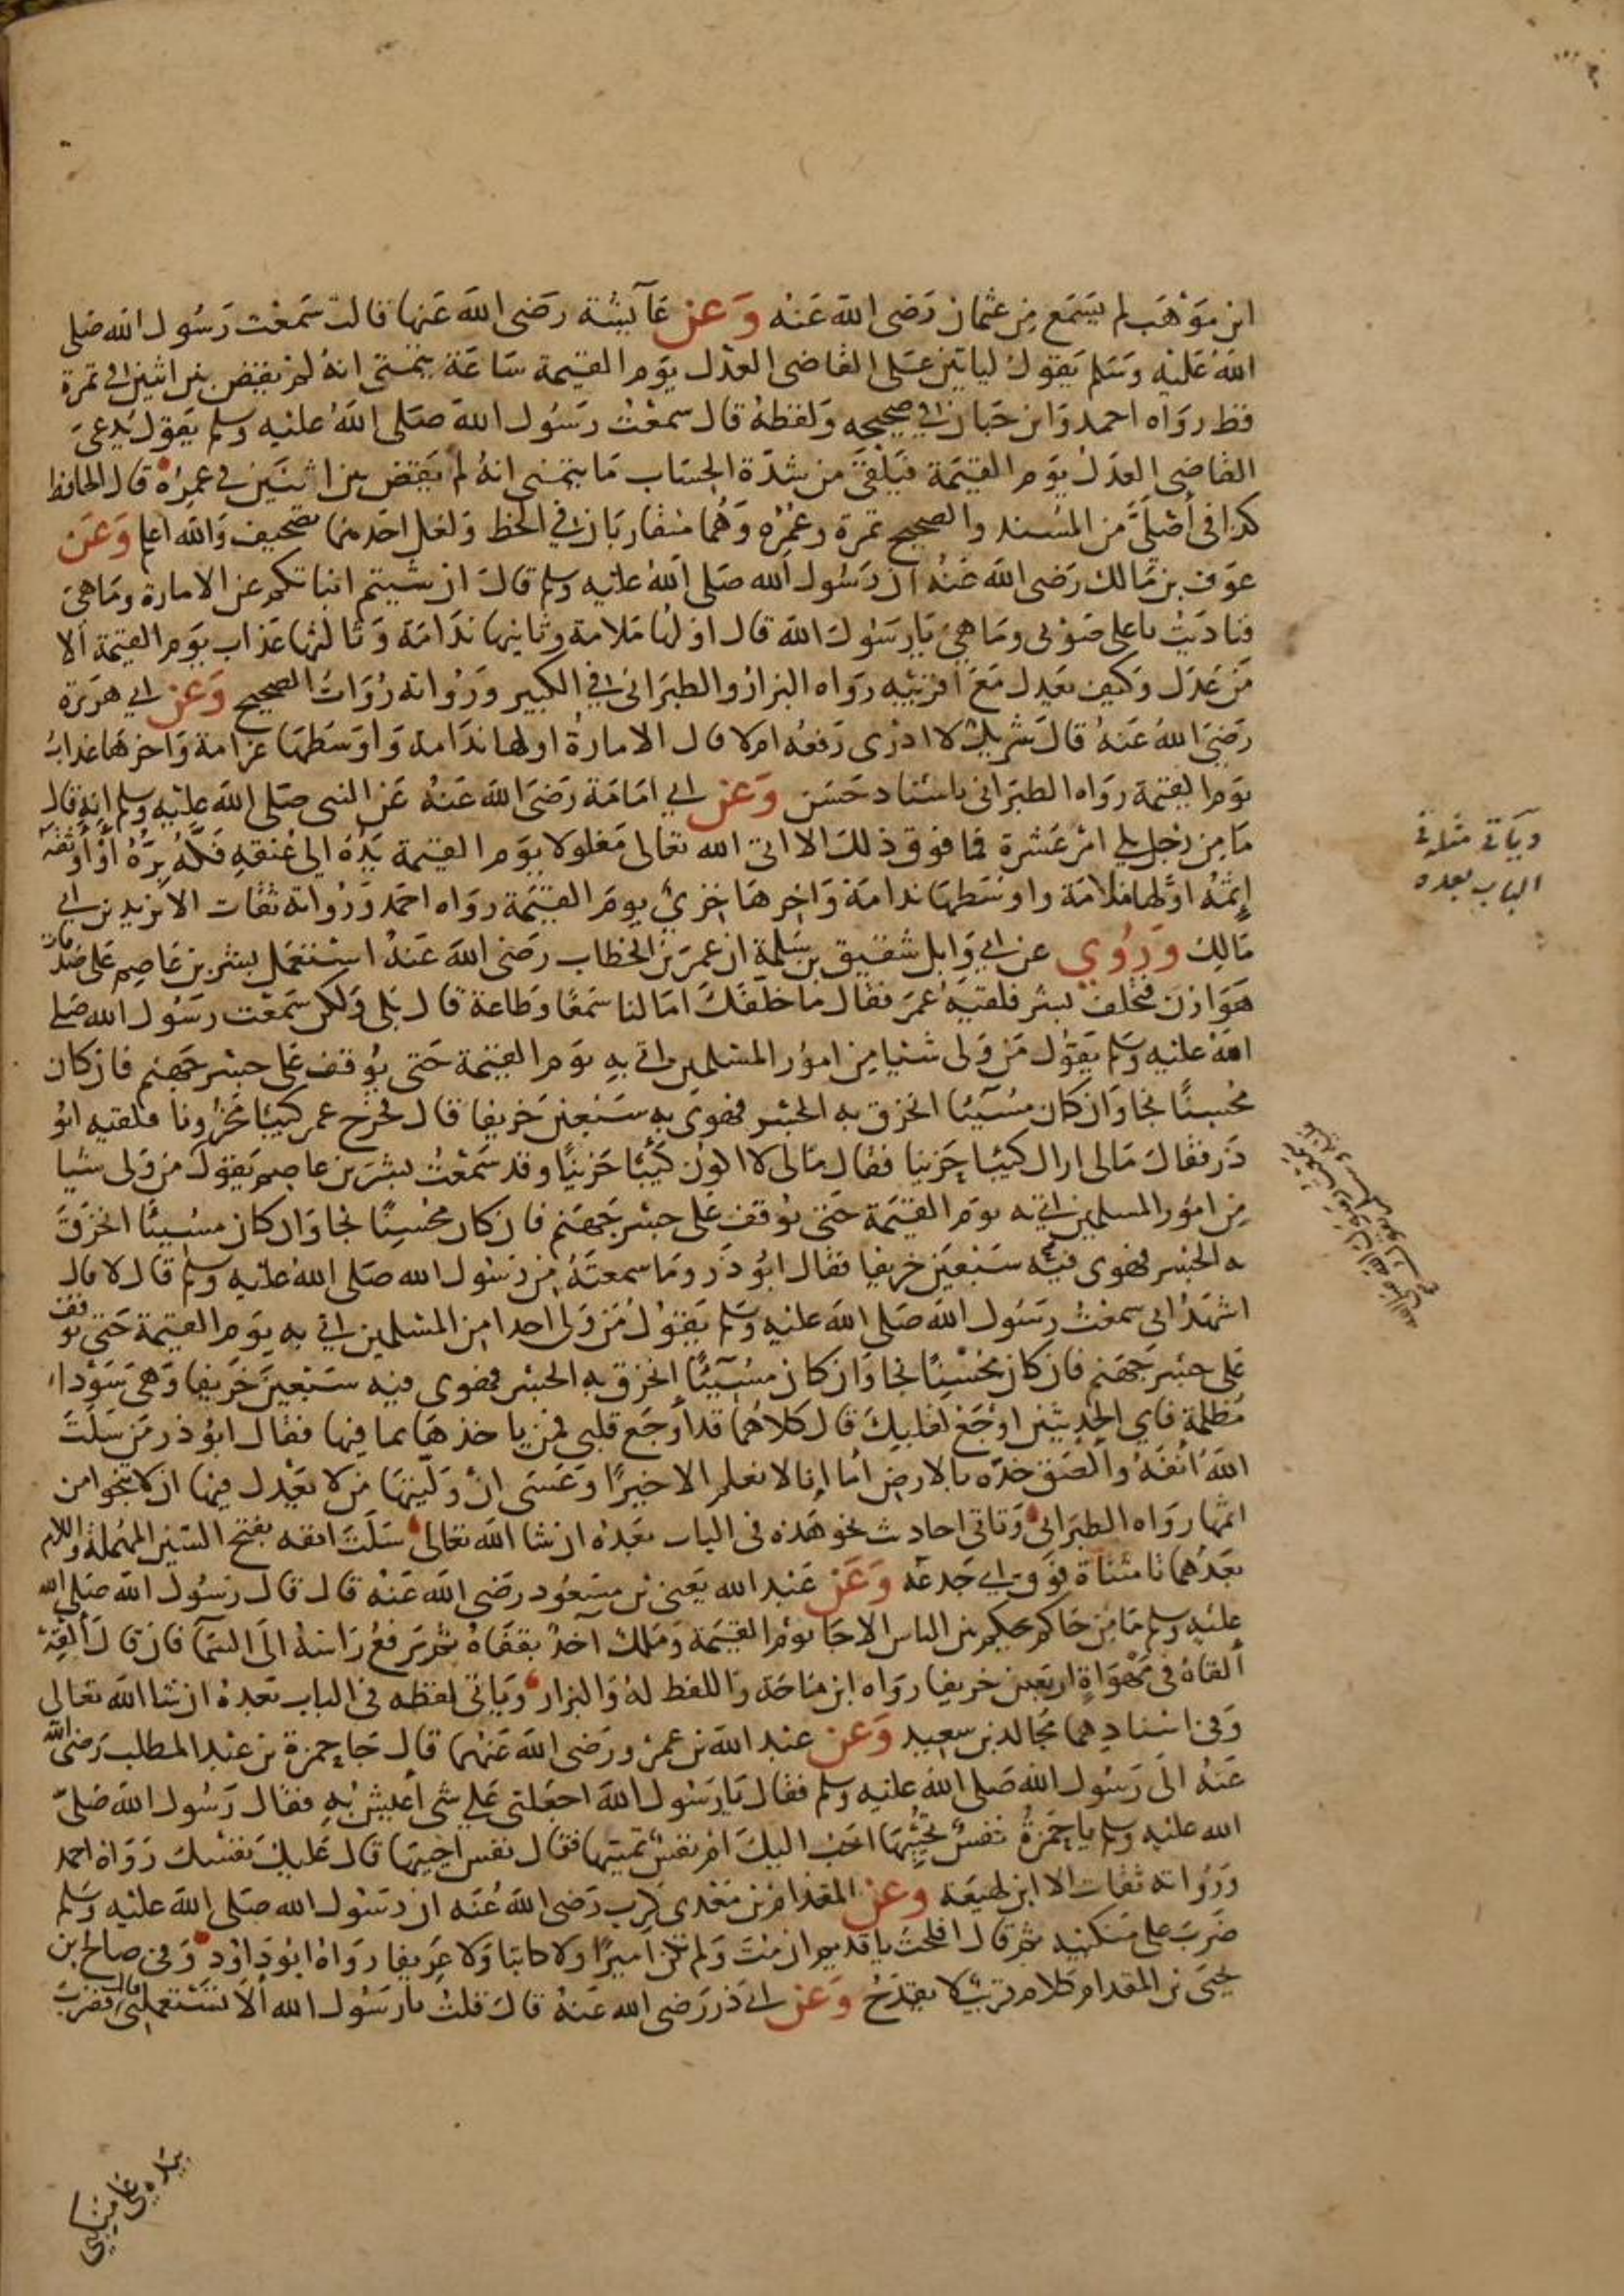 ابن موهب لم يسمع من عثمان رضى الله عنه وعن عآيشة رضى الله عنها قالت سمعت رسول الله صلى
الله عليه وسلم يقول لياتين على القاضى العدل يوم القيمة ساعة يتمنى انه لم يقض بين اثنين في تمرة
قط رواه احمد وابن حبان في صحيحه ولفظه قال سمعت رسول الله صلى الله عليه وسلم يقول يدعى
القاضى العدل يوم القيمة فيلقى من شدة الحساب ما يتمنى انه لم يقض بين اثنين في عمره قال الحافظ
كذا في أصلي من المسند والصحيح تمرة وعمره وهما متقاربان في الخط ولعل احدهما تصحيف والله اعلم وعن
عوف بن مالك رضى الله عنه ان رسول الله صلى الله عليه وسلم قال ان شيتم انباتكم عن الامارة وما هي
فناديت باعلى صوتى وما هي يا رسول الله قال اولها ملامة وثانيها ندامة وثالثها عذاب يوم القيمة الا
من عدل وكيف يعدل مع اقربيه رواه البزار والطبرانى في الكبير ورواته رواة الصحيح وعن ابي هريرة
رضي الله عنه قال شريك لا ادرى رفعه ام لا قال الامارة اولها ندامة واوسطها غرامة واخرها عذاب
يوم القيمة رواه الطبرانى باسناد حسن وعن ابي امامة رضى الله عنه عن النبى صلى الله عليه وسلم انه قال
ما من رجل يلي امر عشرة فما فوق ذلك الا اتى الله تعالى مغلولا يوم القيمة يده الى عنقه فكه بره أو أوثقه
إثمه اولها ملامة واوسطها ندامة واخرها خزي يوم القيمة رواه احمد ورواته ثقات الا يزيد بن ابي
مالك وروي عن ابي وايل شقيق بن سلمة ان عمر بن الخطاب رضى الله عنه استعمل بشر بن عاصم على صدقات
هوازن فتخلف بشر فلقيه عمر فقال ما خلفك اما لنا سمعا وطاعة قال بلى ولكن سمعت رسول الله صلى
الله عليه وسلم يقول من ولى شيا من امور المسلمين اتي به يوم القيمة حتى يوقف على جسر جهنم فان كان
محسنا نجا وان كان مسيئا انخرق به الجسر فهوى به سبعين خريفا قال فخرج عمر كيئبا محزونا فلقيه ابو
ذر فقال مالى اراك كيئبا حزينا فقال مالى لا اكون كئيبا حزينا وقد سمعت بشر بن عاصم يقول من ولى شيا
من امور المسلمين اتي به يوم القيمة حتى يوقف على جسر جهنم فان كان محسنا نجا وان كان مسيئا انخرق
به الجسر فهوى فيه سبعين خريفا فقال ابو ذر وما سمعته من رسول الله صلى الله عليه وسلم قال لا قال
اشهد انى سمعت رسول الله صلى الله عليه وسلم يقول من ولى احدا من المسلمين اتي به يوم القيمة حتى يوقف
على جسر جهنم فان كان محسنا نجا وان كان مسيئا انخرق به الجسر فهوى فيه سبعين خريفا وهى سوداء
مظلمة فاي الحديثين اوجع لقلبك قال كلاهما قد أوجع قلبي فمن ياخذها بما فيها فقال ابو ذر من سلت
الله انفه والصق خده بالارض أما إنا لا نعلم الا خيرا وعسى ان وليتها من لا يعدل فيها ان لا ينجوا من
اثمها رواه الطبرانى وتاتى احاديث نحو هذه في الباب بعده ان شا الله تعالى سلت انفه بفتح السين المهملة واللام
بعدهما تا مثناة فوق اي جدعه وعن عبد الله يعنى بن مسعود رضى الله عنه قال قال رسول الله صلى الله
عليه وسلم ما من حاكم يحكم بين الناس الا جا يوم القيمة وملك آخذ بقفاه ثم يرفع راسه الى السما فان قال ألقه
ألقاه في مهواة اربعين خريفا رواه ابن ماجة واللفظ له والبزار وياتى لفظه في الباب بعده ان شا الله تعالى
وفى اسنادهما مجالد بن سعيد وعن عبد الله بن عمرو رضى الله عنهما قال جا حمزة بن عبد المطلب رضى الله
عنه الى رسول الله صلى الله عليه وسلم فقال يا رسول الله اجعلنى على شى أعيش به فقال رسول الله صلى
الله عليه وسلم يا حمزة نفس تحييها احب اليك ام نفس تميتها فقال نفس احييها قال عليك نفسك رواه احمد
ورواته ثقات الا ابن لهيعة وعن المقدام بن معدى كرب رضى الله عنه ان رسول الله صلى الله عليه وسلم
ضرب على منكبيه ثم قال افلحت يا قديم ان مت ولم تكن اميرا ولا كاتبا ولا عريفا رواه ابو داود وفى صالح بن
يحيى بن المقدام كلام قريب لا يقدح وعن ابى ذر رضى الله عنه قال قلت يا رسول الله ألا تستعملنى قال فضرب
وياتى مثله في
الباب بعده
بيده على منكبي